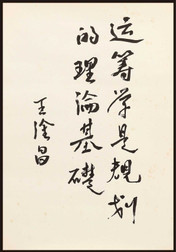 运筹学是规划
的理論基礎
王淦昌